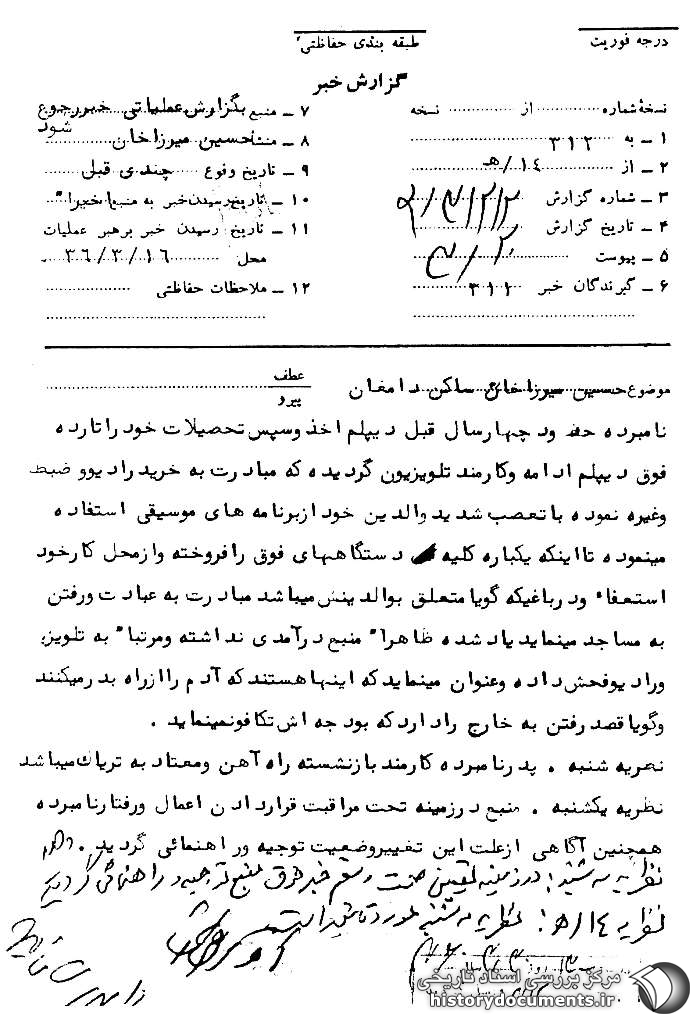 درجه فوریت
طبقه بندی حفاظتی
گزارش خبر
نسخهٔ شماره ............ از ............ نسخه
۱ ــ به ۳۱۲
۲ ــ از ۱۴/هـ
۳ ــ شماره گزارش
۴ ــ تاریخ گزارش
۵ ــ پیوست
۶ ــ گیرندگان خبر ۳۱۱
۷ ــ منبع بگزارش عملیاتی خبررجوع
شود
۸ ــ منشأ حسین میرزاخان
۹ ــ تاریخ وقوع چندی قبل
۱۰ ــ تاریخ رسیدن خبر به منبع اخیرا"
۱۱ ــ تاریخ رسیدن خبر برهبر عملیات
محل ۳۶/۳/۱۶
۱۲ ــ ملاحظات حفاظتی
موضوع حسین میرزاخان ساکن دامغان
عطف
پیرو
نامبرده حدود چهارسال قبل دیپلم اخذ وسپس تحصیلات خود را تارده
فوق دیپلم ادامه وکارمند تلویزیون گردیده که مبادرت به خرید رادیوو ضبط
وغیره نموده باتعصب شدید والدین خود ازبرنامه های موسیقی استفاده
مینموده تااینکه یکباره کلیه دستگاههای فوق رافروخته وازمحل کارخود
استعفاء ودرباغیکه گویا متعلق بوالدینش میباشد مبادرت به عبادت ورفتن
به مساجد مینماید یادشده ظاهرا" منبع درآمدی نداشته ومرتبا" به تلویزیون
ورادیوفحش داده وعنوان مینماید که اینها هستند که آدم راازراه بدرمیکنند
وگویا قصد رفتن به خارج رادارد که بودجه اش تکافونمینماید .
نظریه شنبه . پدرنامبرده کارمند بازنشسته راه آهن ومعتاد به تریاک میباشد
نظریه یکشنبه . منبع درزمینه تحت مراقبت قراردادن اعمال ورفتارنامبرده
همچنین آگاهی ازعلت این تغییروضعیت توجیه وراهنمائی گردید .
نظریه سه شنبه : در زمینه تعیین صحت و سقم خبر فوق منبع توجیه و راهنمائی گردید
نظریه ۱۴/هـ : نظریه سه شنبه مورد تائید است
مرکز بررسی اسناد تاریخی
historydocuments.ir